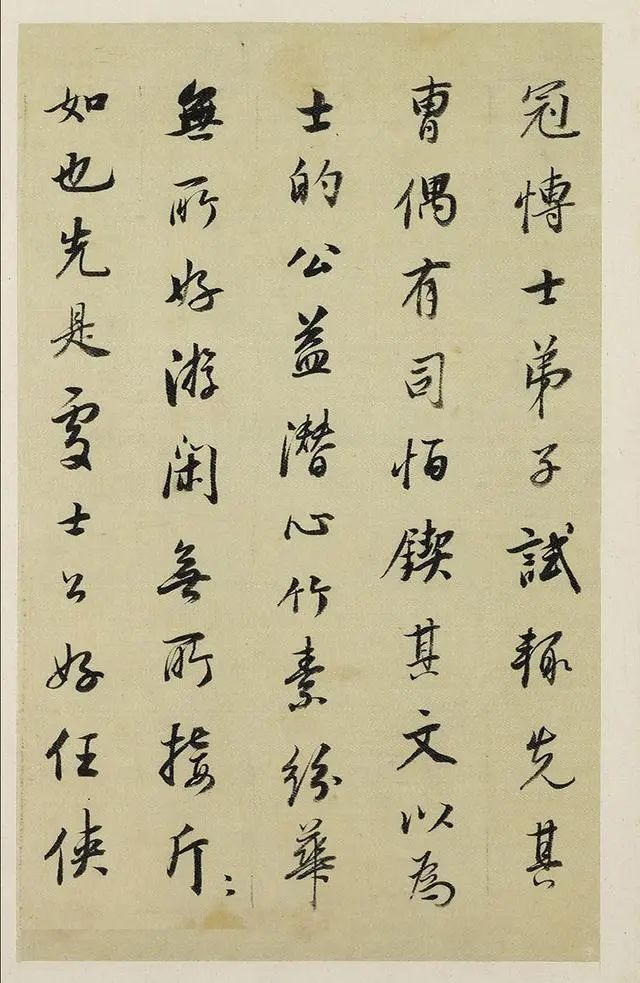 冠博士弟子試輒先其
曹偶有司恒鍥其文以為
士的公益潛心竹素紛華
無所好游閑無所接斤〻
如也先是處士公好任俠